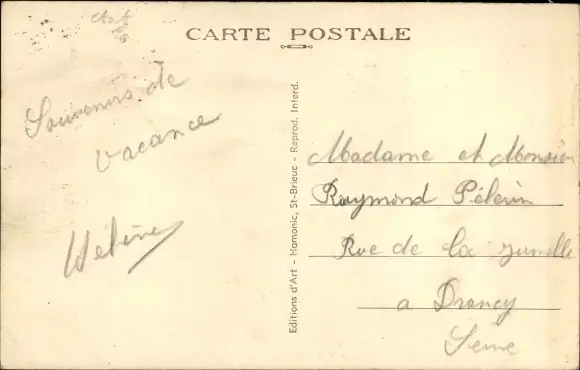 CARTE POSTALE
Souvenirs de
vacance
Hélène
Editions d'Art - Hamonic, St-Brieuc - Reprod. Interd.
Madame et Monsieur
Raymond Pélerin
Rue de la
a Drancy
Seine